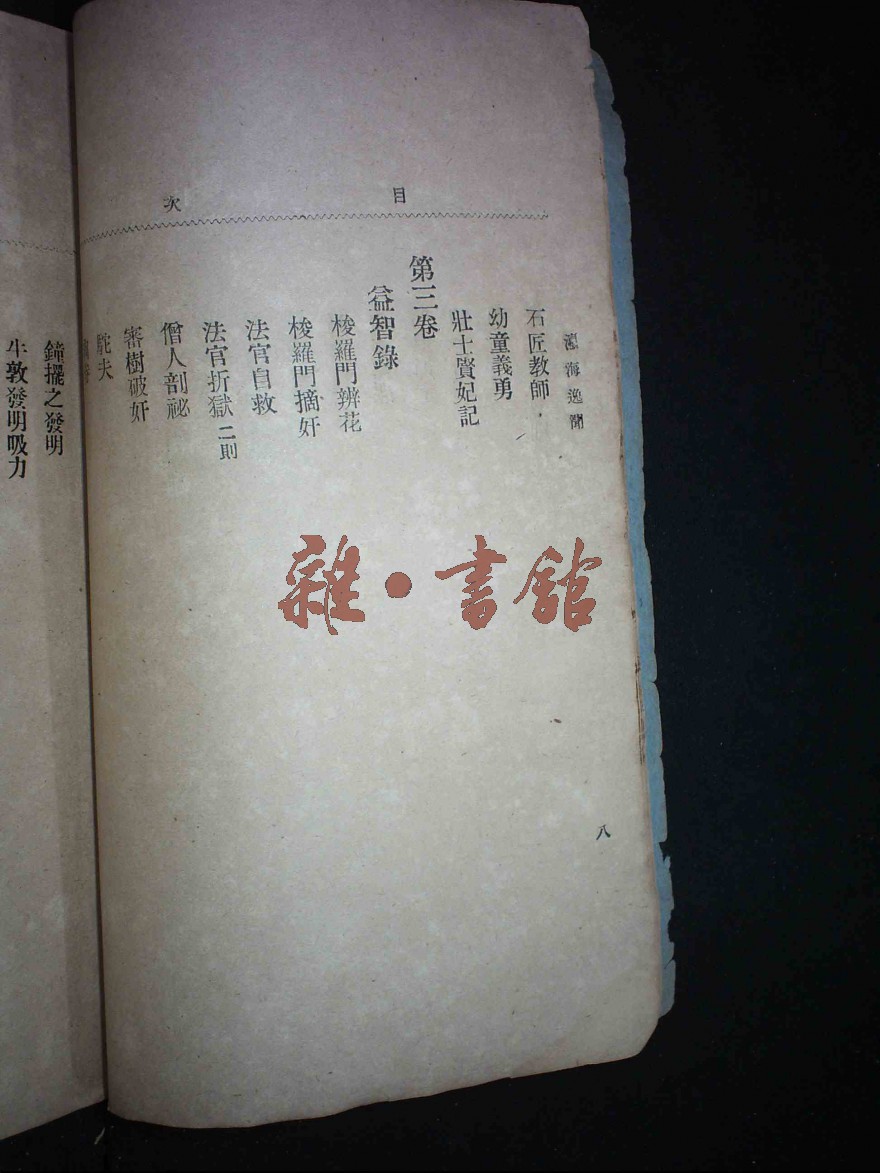 目次
瀛海逸聞
石匠教師
幼童義勇
壯士賢妃記
第三卷
益智錄
梭羅門辨花
梭羅門摘奸
法官自救
法官折獄二則
僧人剖祕
審樹破奸
駝夫
八
鐘擺之發明
牛敦發明吸力
雜·書館